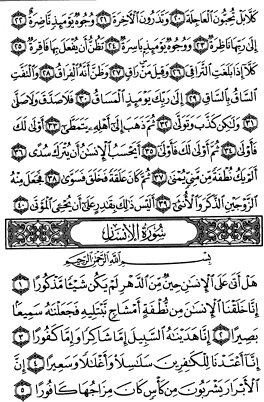 كَلَّا بَلْ تُحِبُّونَ ٱلْعَاجِلَةَ ٢٠ وَتَذَرُونَ ٱلْءَاخِرَةَ ٢١ وُجُوهٌ يَوْمَئِذٍ نَّاضِرَةٌ ٢٢
إِلَىٰ رَبِّهَا نَاظِرَةٌ ٢٣ وَوُجُوهٌ يَوْمَئِذٍۭ بَاسِرَةٌ ٢٤ تَظُنُّ أَن يُفْعَلَ بِهَا فَاقِرَةٌ ٢٥
كَلَّآ إِذَا بَلَغَتِ ٱلتَّرَاقِىَ ٢٦ وَقِيلَ مَنْ رَاقٍ ٢٧ وَظَنَّ أَنَّهُ ٱلْفِرَاقُ ٢٨ وَٱلْتَفَّتِ
ٱلسَّاقُ بِٱلسَّاقِ ٢٩ إِلَىٰ رَبِّكَ يَوْمَئِذٍ ٱلْمَسَاقُ ٣٠ فَلَا صَدَّقَ وَلَا صَلَّىٰ
٣١ وَلَٰكِن كَذَّبَ وَتَوَلَّىٰ ٣٢ ثُمَّ ذَهَبَ إِلَىٰٓ أَهْلِهِۦ يَتَمَطَّىٰٓ ٣٣ أَوْلَىٰ لَكَ
فَأَوْلَىٰ ٣٤ ثُمَّ أَوْلَىٰ لَكَ فَأَوْلَىٰٓ ٣٥ أَيَحْسَبُ ٱلْإِنسَٰنُ أَن يُتْرَكَ سُدًى ٣٦
أَلَمْ يَكُ نُطْفَةً مِّن مَّنِىٍّ يُمْنَىٰ ٣٧ ثُمَّ كَانَ عَلَقَةً فَخَلَقَ فَسَوَّىٰ ٣٨ فَجَعَلَ مِنْهُ
ٱلزَّوْجَيْنِ ٱلذَّكَرَ وَٱلْأُنثَىٰٓ ٣٩ أَلَيْسَ ذَٰلِكَ بِقَٰدِرٍ عَلَىٰٓ أَن يُحْـِۧىَ ٱلْمَوْتَىٰ ٤٠
سُورَةُ الإِنسَانِ
بِسْمِ ٱللَّهِ ٱلرَّحْمَٰنِ ٱلرَّحِيمِ
هَلْ أَتَىٰ عَلَى ٱلْإِنسَٰنِ حِينٌ مِّنَ ٱلدَّهْرِ لَمْ يَكُن شَيْـًٔا مَّذْكُورًا ١
إِنَّا خَلَقْنَا ٱلْإِنسَٰنَ مِن نُّطْفَةٍ أَمْشَاجٍ نَّبْتَلِيهِ فَجَعَلْنَٰهُ سَمِيعًۢا
بَصِيرًا ٢ إِنَّا هَدَيْنَٰهُ ٱلسَّبِيلَ إِمَّا شَاكِرًا وَإِمَّا كَفُورًا ٣
إِنَّآ أَعْتَدْنَا لِلْكَٰفِرِينَ سَلَٰسِلَا۟ وَأَغْلَٰلًا وَسَعِيرًا ٤ إِنَّ
ٱلْأَبْرَارَ يَشْرَبُونَ مِن كَأْسٍ كَانَ مِزَاجُهَا كَافُورًا ٥